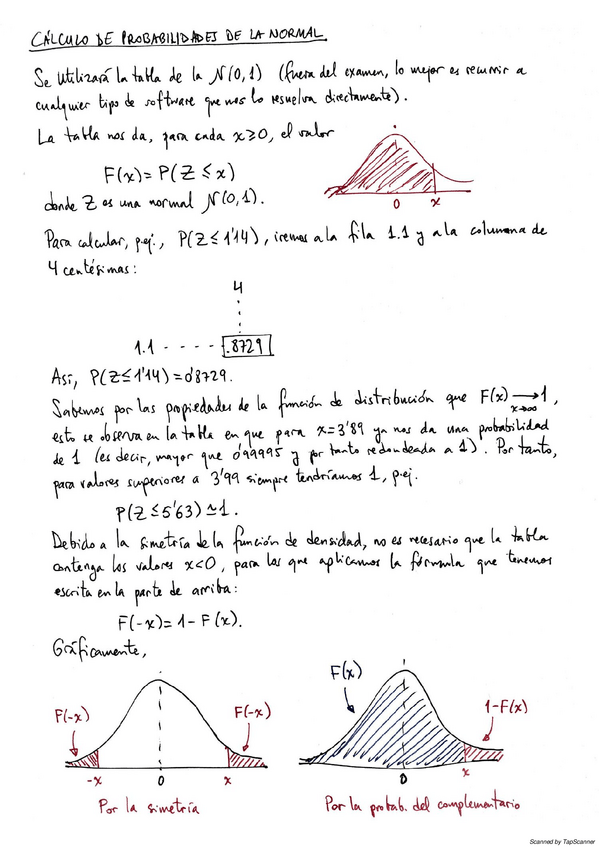 CÁLCULO DE PROBABILIDADES DE LA NORMAL
Se utilizará la tabla de la N(0,1) (fuera del examen, lo mejor es recurrir a
cualquier tipo de software que nos lo resuelva directamente).
La tabla nos da, para cada x≥0, el valor
F(x)= P(Z≤x)
0 x
donde Z es una normal N(0,1).
Para calcular, p.ej., P(Z≤1'14), iremos a la fila 1.1 y a la columna de
4 centésimas:
4
1.1 - - - - .8729
Así, P(Z≤1'14)=0'8729.
Sabemos por las propiedades de la función de distribución que F(x) ⟶ 1,
x→∞
esto se observa en la tabla en que para x=3'89 ya nos da una probabilidad
de 1 (es decir, mayor que 0'99995 y por tanto redondeada a 1). Por tanto,
para valores superiores a 3'99 siempre tendríamos 1, p.ej.
P(Z≤5'63)≃1.
Debido a la simetría de la función de densidad, no es necesario que la tabla
contenga los valores x<0, para los que aplicamos la fórmula que tenemos
escrita en la parte de arriba:
F(-x)=1-F(x).
Gráficamente,
F(-x) F(-x)
-x 0 x
Por la simetría
F(x) 1-F(x)
0 x
Por la probab. del complementario
Scanned by TapScanner